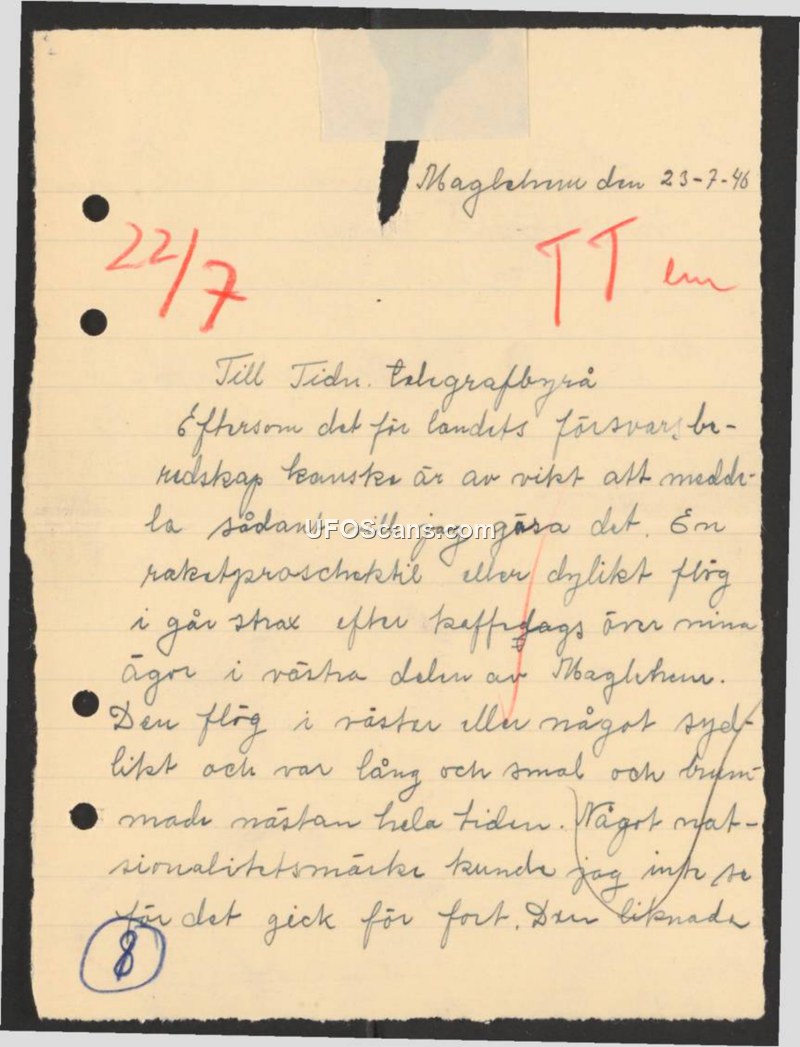 Maglehem den 23-7-46
22/7
TT em
Till Tidn. telegrafbyrå
Eftersom det för landets försvarsbe-
redskap kanske är av vikt att medde-
la sådant vill jag göra det. En
raketproschektil eller dylikt flög
i går strax efter kaffedags över mina
ägor i västra delen av Maglehem.
Den flög i väster eller något syd-
likt och var lång och smal och brum-
made nästan hela tiden. Något nat-
sionalitetsmärke kunde jag inte se
för det gick för fort. Den liknade
8
UFOScans.com